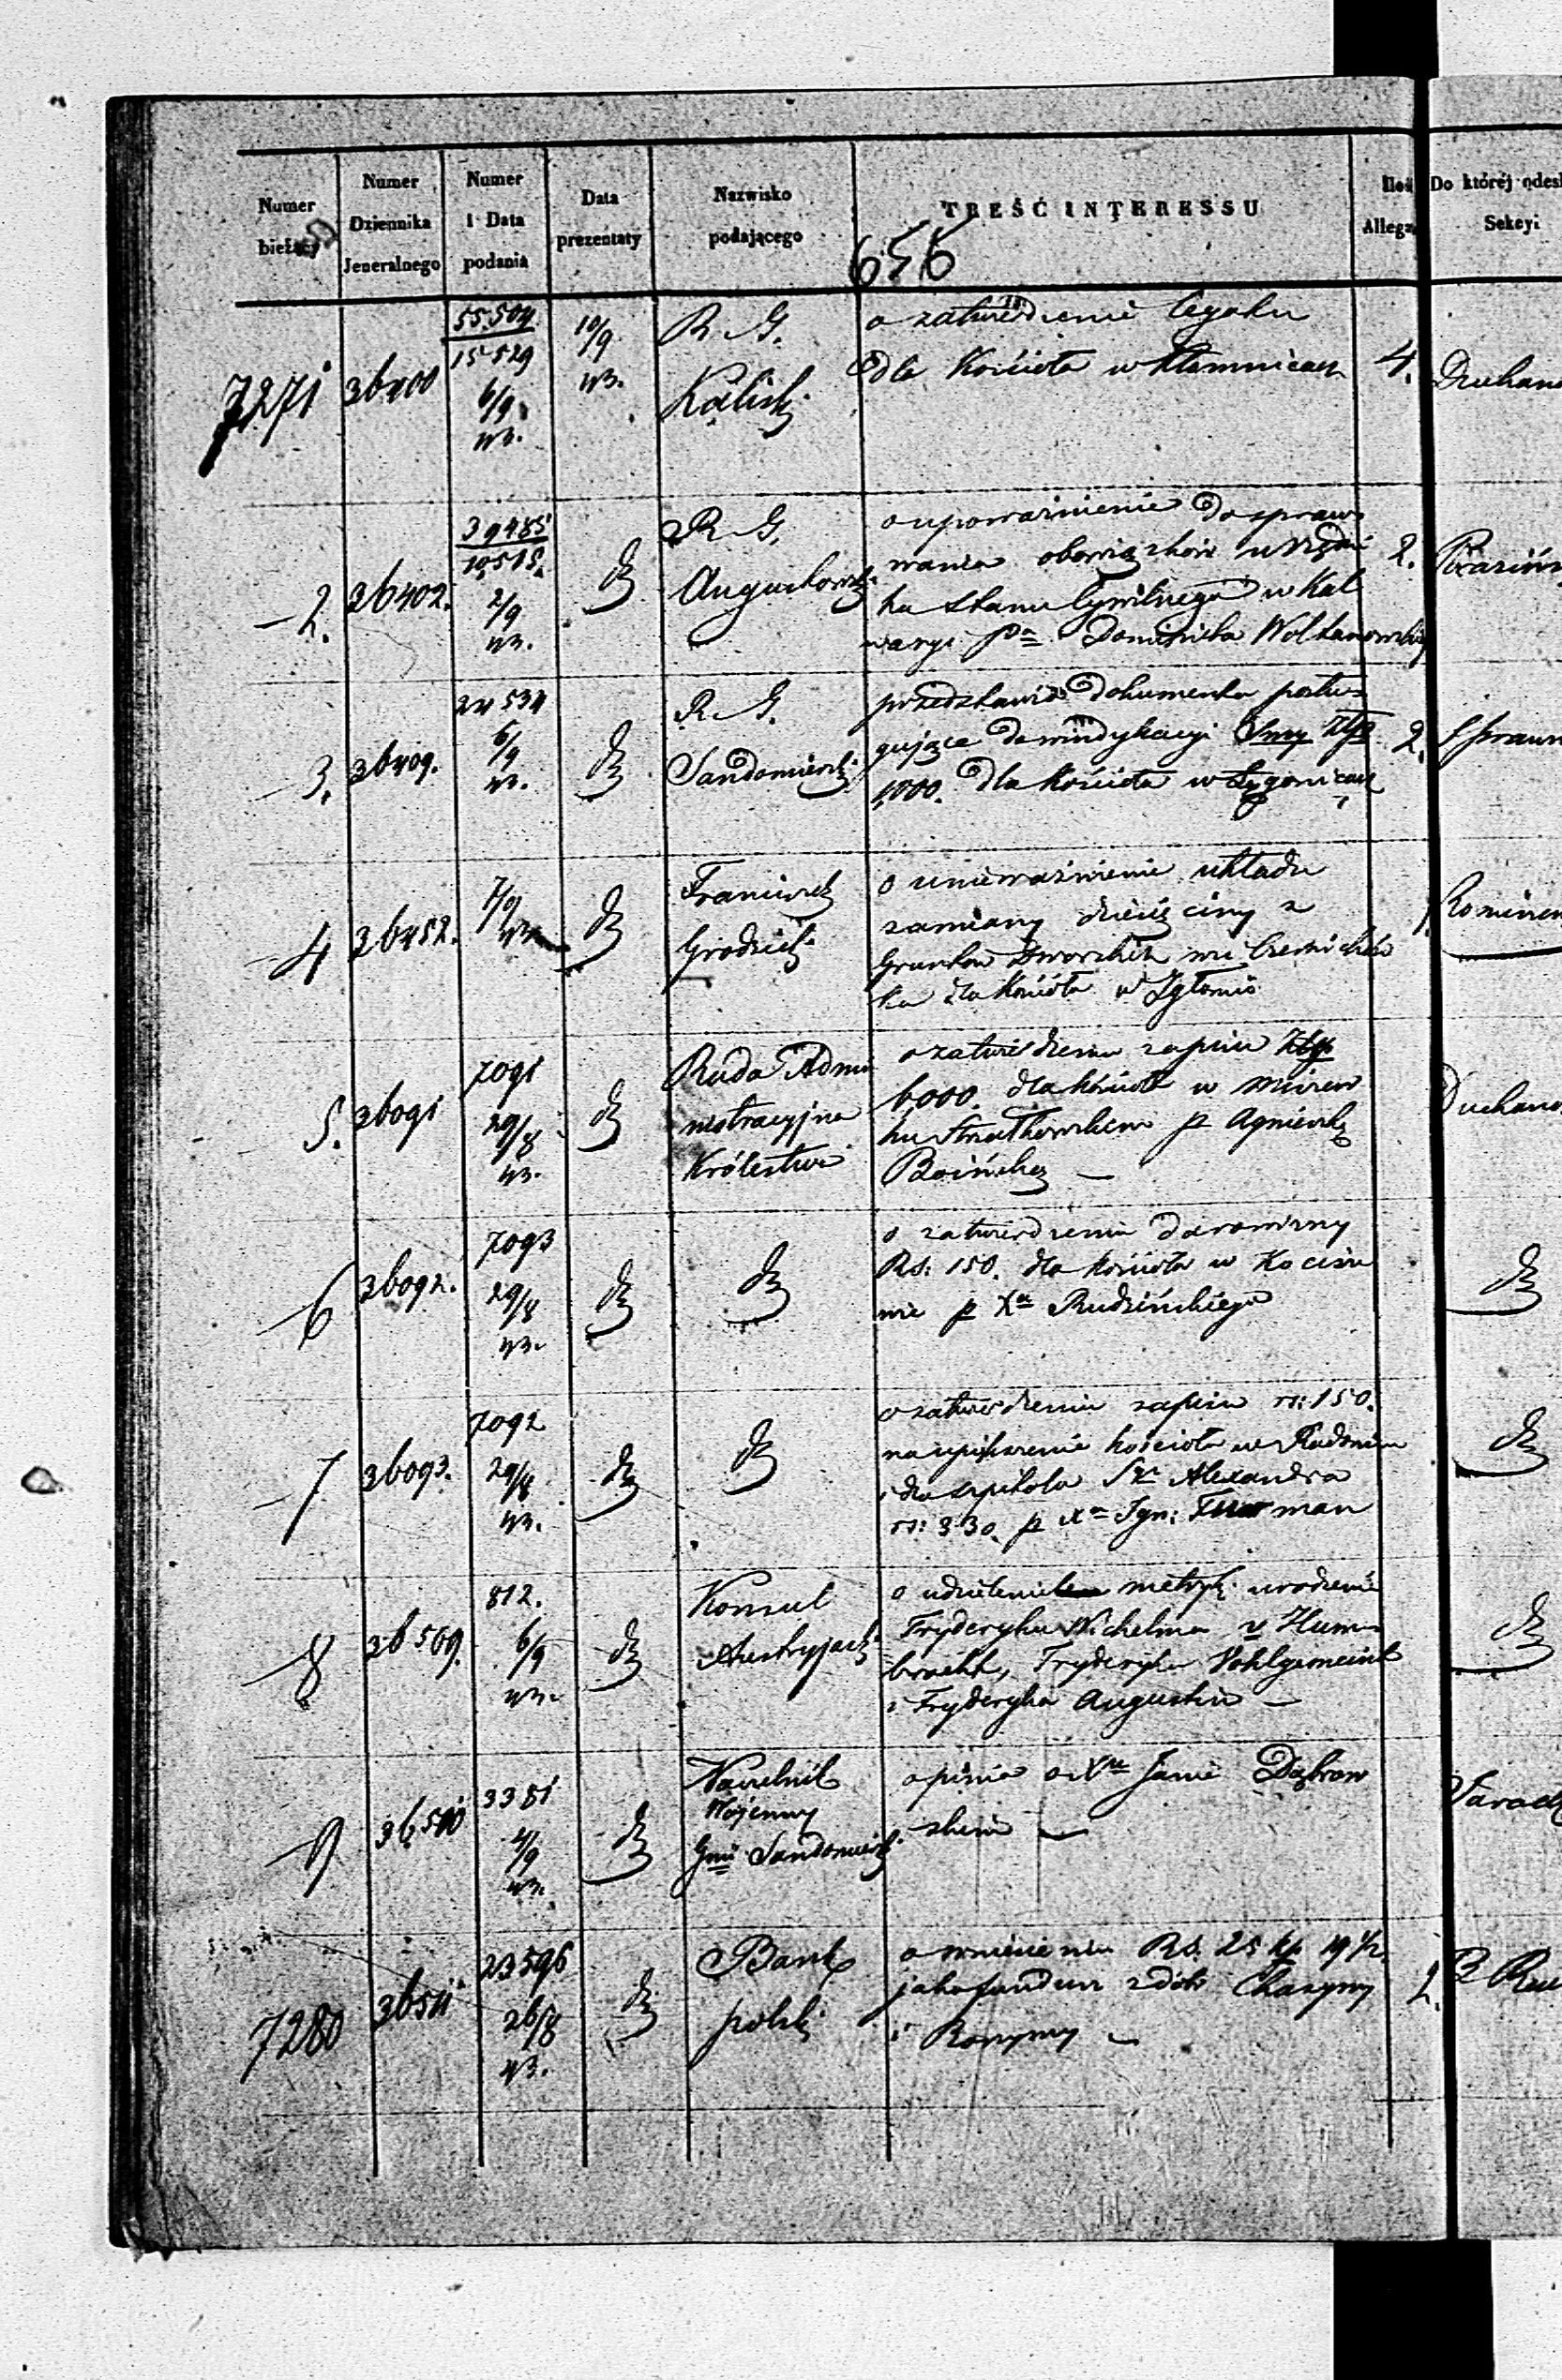 Numer bieżący
Numer Dziennika Jeneralnego
Numer i Data podania
Data prezentaty
Nazwisko podającego
TREŚĆ INTERESSU
Allega
Do któréj odesł
Sekcyi
656
7271
36400
55.504
15529
6/9
43.
10/9
43.
R. G.
Kaliski
o zatwierdzenie legatu
dla Kościoła w Kłomnicach
4.
Duchana
2.
36402.
39485
10515.
2/9
43.
dt
R. G.
Augustowski
o upoważnienie do spraw
wania obowiązków urzędni
ka stanu Cywilnego w Kal
waryi Pa Dominika Woltanowski
2.
3.
36409.
24534
6/9
43.
dt
R. G.
Sandomierski
przedstawia dokumenta posłu
gujące do windykacyi Smy Złp
1000. dla Kościoła w
2.
4
36452.
7/9
43
dt
Franciszek
Grodzicki
o unieważnienie układu
zamiany dziesięciny z
Gruntów Dworskich we
ka dla Kościoła w Igłomi
1.
5.
36091
7091
29/8
43.
dt
Rada Admi
nistracyjna
Królestwa
o zatwierdzeniu zapisu Złp.
6000. dla kościoła w
ku p Agnieszkę
Boińską —
Duchano
6
36092.
7093
29/8
43.
dt
dt
o zatwierdzeniu darowizny
Rs: 150. dla kościoła w Kocisze
wie p Xa Rudzińskiego
dt
7
36093.
7092
29/8
43.
dt
dt
o zatwierdzeniu zapisu rs: 150.
na upiększenie kościoła w Radomiu
i dla szpitala Sgo Alexandra
rs: 330. p Xa Ign: man
dt
8
36509.
812.
6/9
43.
dt
Konsul
Austryjacki
o udzielenie metryk: urodzenia
Fryderyka Wilhelma v Hum
bracht, Fryderyka Wohlgemeint
i Fryderyka Augustin —
dt
9
36510
3381
4/9
43.
dt
Naczelnik
Wojenny
Gnii Sandomierski
opinia o Xdzu Janie Dąbrow
skim —
7280
36511
23596
26/8
43.
dt
Bank
polski
o wniesieniu Rs. 25 kp 19 1/2
jako fundum z dóbr Charzyny
i —
2.